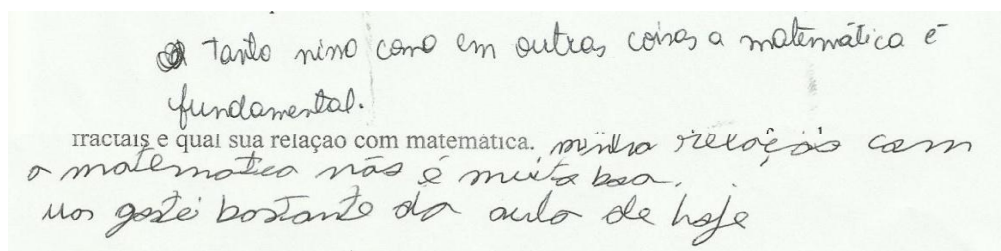 Tanto nisso como em outras coisas a matemática é
fundamental.
fractais e qual sua relação com matemática. minha relação com
a matematica não é muito boa.
Mas gostei bastante da aula de hoje